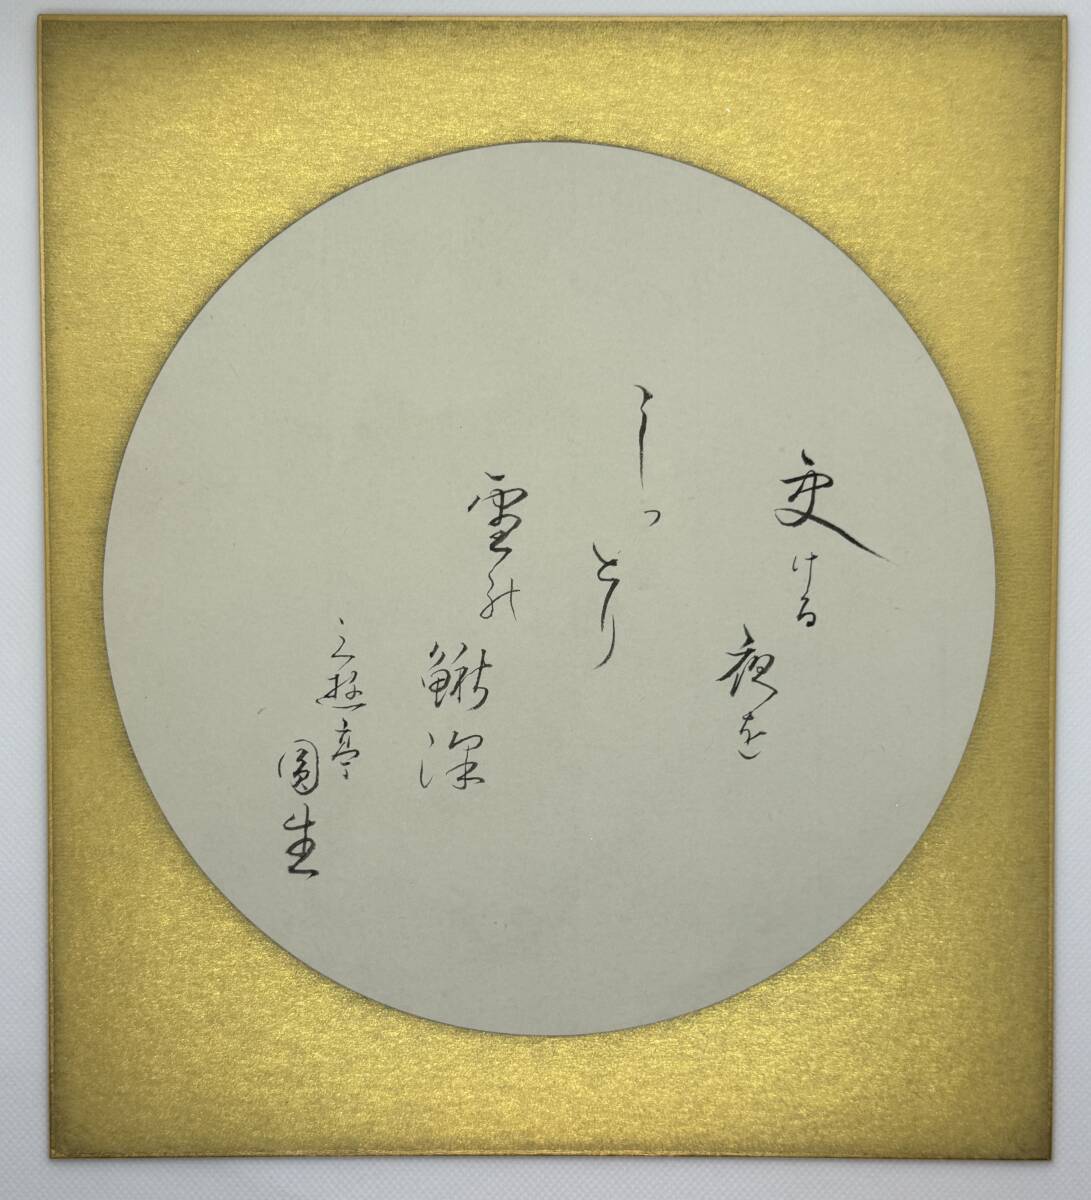 更ける
夜を
しっ
とり
雪の
鰍澤
三遊亭
圓生